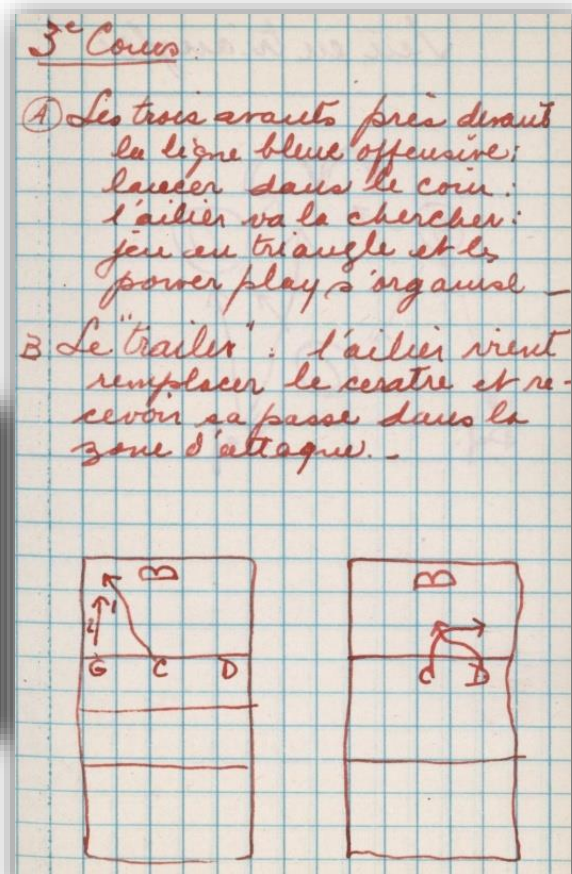 3e Cours
A Les trois avants près devant
la ligne bleue offensive:
lancer dans le coin:
l'ailier va la chercher:
jeu en triangle et le
power play s'organise -
B Le "trailer": l'ailier vient
remplacer le centre et re-
cevoir sa passe dans la
zone d'attaque. -
B B
1
2
G C D C D